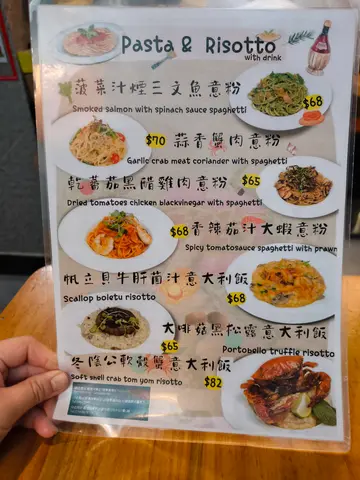 Pasta & Risotto
with drink
菠菜汁煙三文魚意粉
Smoked salmon with spinach sauce spaghetti
$68
$70
蒜香蟹肉意粉
Garlic crab meat coriander with spaghetti
乾蕃茄黑醋雞肉意粉
$65
Dried tomatoes chicken blackvinegar with spaghetti
$68
香辣茄汁大蝦意粉
Spicy tomatosauce spaghetti with prawn
帆立貝牛肝菌汁意大利飯
Scallop boletu risotto
$68
大啡菇黑松露意大利飯
$65
Portobello truffle risotto
冬陰公軟殼蟹意大利飯
Soft shell crab tom yom risotto
$82